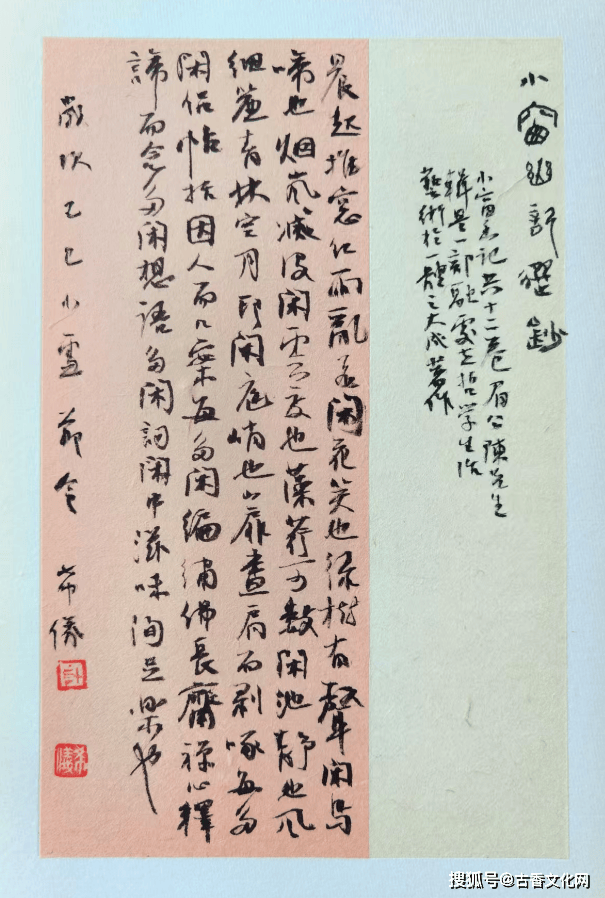 小窗幽記選鈔
小窗幽記共十二卷眉公陳先生
輯是一部融處世哲學生活
藝術於一體之大成著作
晨起推窓紅雨亂飛閑花笑也綠樹有聲閑鸟
啼也烟嵐滅没閑雲度也藻荇可數閑池静也風
細簾青林空月印閑庭峭也山扉晝扃而剥啄每多
閑侣帖括因人而几案每多閑編繡佛長齋禅心釋
諦而念多閑想語多閑詞閑中滋味洵足樂也
歲次乙巳小雪節令 希儀
希儀
搜狐号@古香文化网